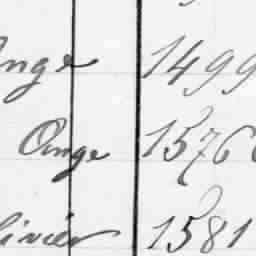 Ange 1499
Ange 1576
Olivier 1581